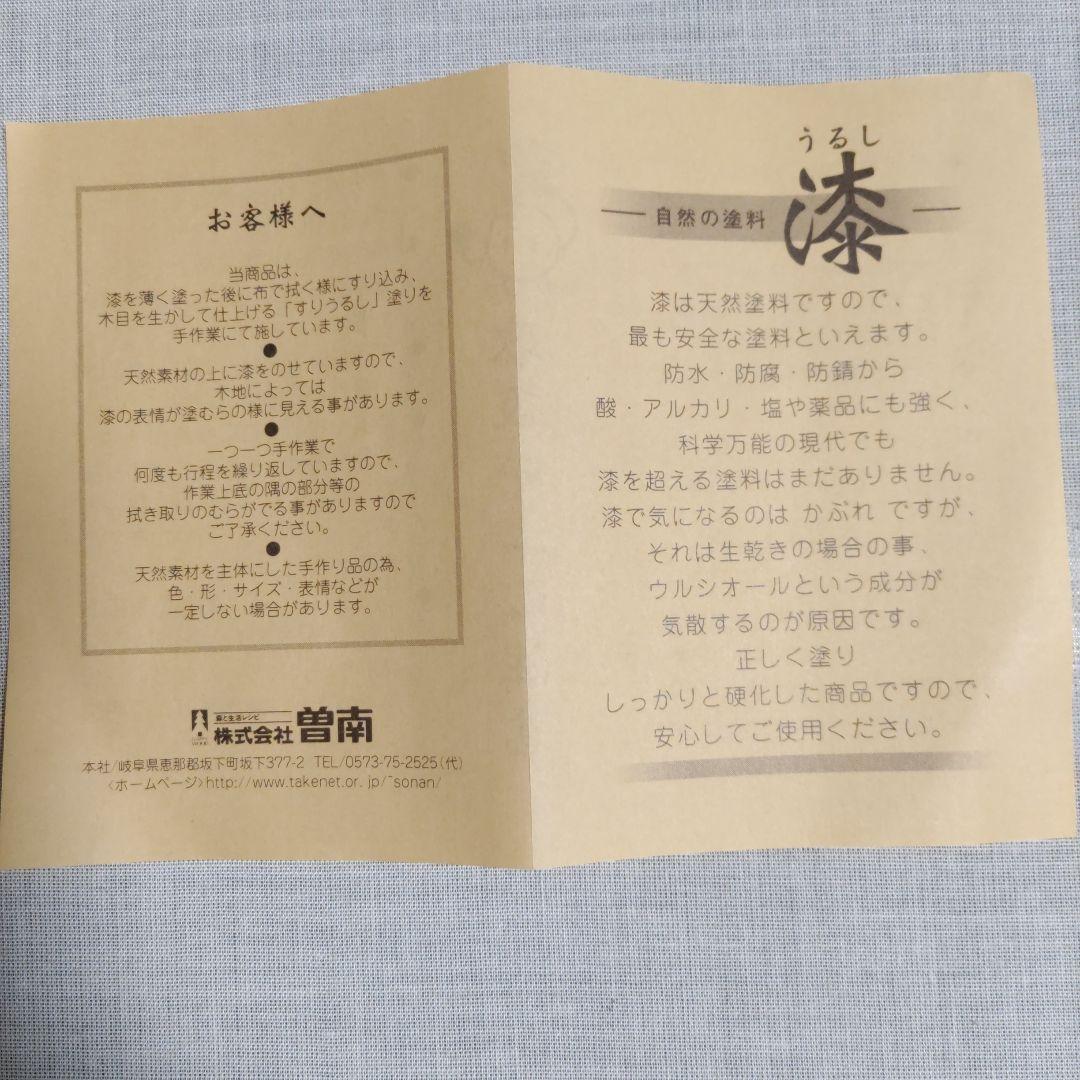 お客様へ
当商品は、
漆を薄く塗った後に布で拭く様にすり込み、
木目を生かして仕上げる「すりうるし」塗りを
手作業にて施しています。
●
天然素材の上に漆をのせていますので、
木地によっては
漆の表情が塗むらの様に見える事があります。
●
一つ一つ手作業で
何度も行程を繰り返していますので、
作業上底の隅の部分等の
拭き取りのむらがでる事がありますので
ご了承ください。
●
天然素材を主体にした手作り品の為、
色・形・サイズ・表情などが
一定しない場合があります。
森と生活レシピ
株式会社 曽南
本社/岐阜県恵那郡坂下町坂下377-2 TEL/0573-75-2525(代)
〈ホームページ〉http://www.takenet.or.jp/~sonan/
うるし
自然の塗料 漆
漆は天然塗料ですので、
最も安全な塗料といえます。
防水・防腐・防錆から
酸・アルカリ・塩や薬品にも強く、
科学万能の現代でも
漆を超える塗料はまだありません。
漆で気になるのは かぶれ ですが、
それは生乾きの場合の事、
ウルシオールという成分が
気散するのが原因です。
正しく塗り
しっかりと硬化した商品ですので、
安心してご使用ください。